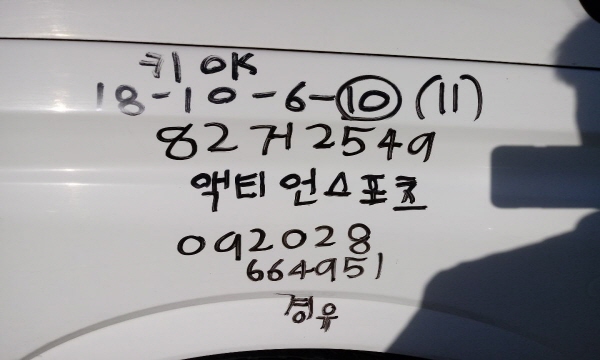 키 OK
18-10-6-10 (11)
82거2549
액티언스포츠
092028
664951
경유